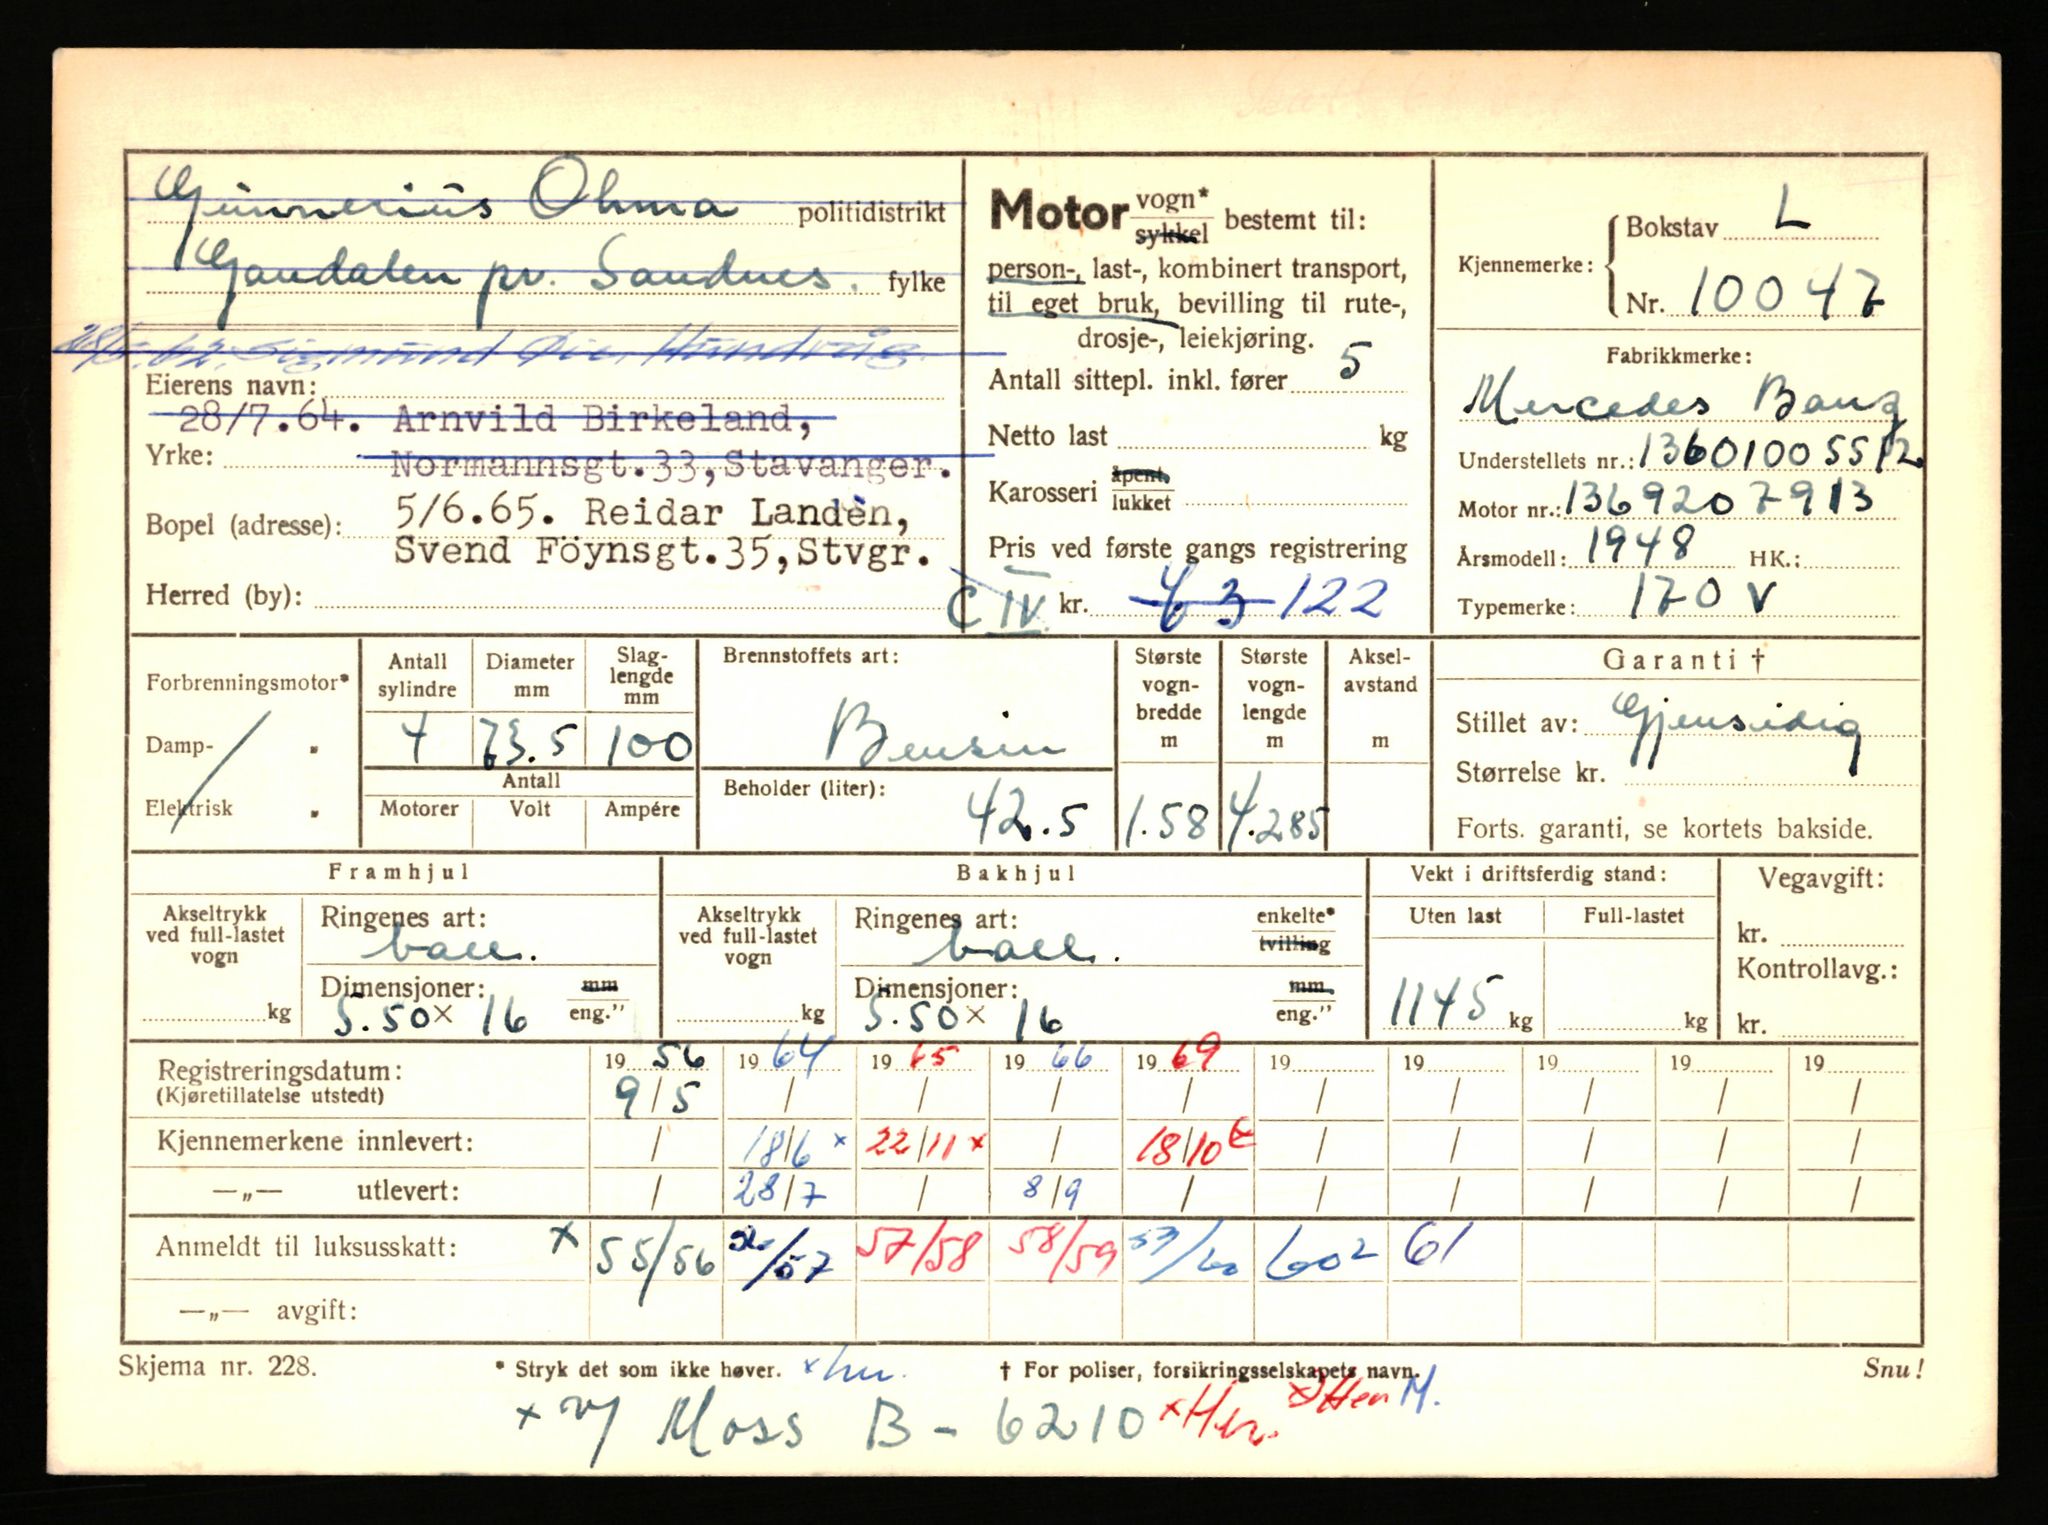 Gunnerius Ohma politidistrikt
Gandalen pr. Sandnes. fylke
Sigmund Hundvåg
Eierens navn:
28/7.64. Arnvild Birkeland,
Yrke:
Normannsgt.33,Stavanger.
5/6.65. Reidar Landèn,
Bopel (adresse):
Svend Föynsgt.35,Stvgr.
Herred (by):
Motor vogn* sykkel bestemt til:
person-, last-, kombinert transport,
til eget bruk, bevilling til rute-,
drosje-, leiekjøring.
Antall sittepl. inkl. fører 5
Netto last kg
Karosseri åpent, lukket
Pris ved første gangs registrering
C IV kr. 122
Kjennemerke: Bokstav L
Nr. 10047
Fabrikkmerke:
Mercedes Banz
Understellets nr.: 13601005512
Motor nr.: 1369207913
Årsmodell: 1948 HK.:
Typemerke: 170 V
Forbrenningsmotor*
Damp- „
Elektrisk „
Antall sylindre 4
Diameter mm 73.5
Slag-lengde mm 100
Antall
Motorer Volt Ampére
Brennstoffets art:
Bensin
Beholder (liter):
42.5
Største vogn-bredde m 1.58
Største vogn-lengde m 4.285
Aksel-avstand m
Garanti †
Stillet av: Gjensidig
Størrelse kr.
Forts. garanti, se kortets bakside.
Framhjul
Akseltrykk ved full-lastet vogn kg
Ringenes art:
ball.
Dimensjoner: mm eng."
5.50 x 16
Bakhjul
Akseltrykk ved full-lastet vogn kg
Ringenes art: enkelte* tvilling
ball.
Dimensjoner: mm. eng."
5.50 x 16
Vekt i driftsferdig stand:
Uten last Full-lastet
1145 kg kg
Vegavgift:
kr.
Kontrollavg.:
kr.
Registreringsdatum: 19 56 19 64 19 65 19 66 19 69 19 19 19 19 19
(Kjøretillatelse utstedt) 9/5 / / / / / / / / /
Kjennemerkene innlevert: / 18/6 x 22/11 x / 18/10 / / / / /
—„— utlevert: / 28/7 / 8/9 / / / / / /
Anmeldt til luksusskatt: x 55/56 56/57 57/58 58/59 59/60 60² 61
—„— avgift:
Skjema nr. 228.
* Stryk det som ikke høver.
† For poliser, forsikringsselskapets navn.
Snu!
x Moss B - 6210 x